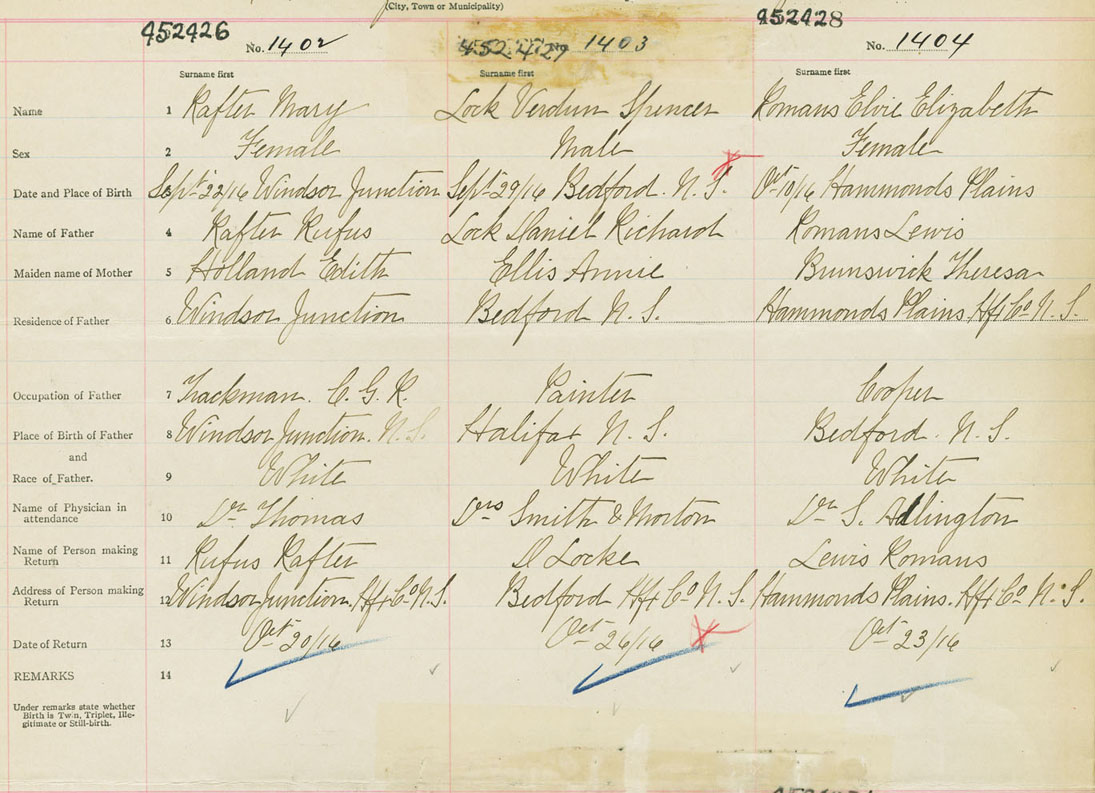 (City, Town or Municipality)
452426 No. 1402 452427 No. 1403 452428 No. 1404
Surname first Surname first Surname first
Name 1 Rafter Mary Lock Verdun Spencer Romans Elvie Elizabeth
Sex 2 Female Male Female
Date and Place of Birth 3 Sept 22/16 Windsor Junction Sept 29/16 Bedford. N. S. Oct 10/16 Hammonds Plains
Name of Father 4 Rafter Rufus Lock Daniel Richard Romans Lewis
Maiden name of Mother 5 Holland Edith Ellis Annie Brunswick Theresa
Residence of Father 6 Windsor Junction Bedford N. S. Hammonds Plains Hfx Co N. S.
Occupation of Father 7 Trackman. C. G. R. Painter Cooper
Place of Birth of Father 8 Windsor Junction. N. S. Halifax N. S. Bedford. N. S.
and
Race of Father. 9 White White White
Name of Physician in
attendance 10 Dr Thomas Drs Smith & Morton Dr S. Adlington
Name of Person making
Return 11 Rufus Rafter D Locke Lewis Romans
Address of Person making
Return 12 Windsor Junction. Hfx Co N. S. Bedford Hfx Co N. S. Hammonds Plains. Hfx Co N. S.
Date of Return 13 Oct 20/16 Oct 26/16 Oct 23/16
REMARKS 14
Under remarks state whether
Birth is Twin, Triplet, Ille-
gitimate or Still-birth.